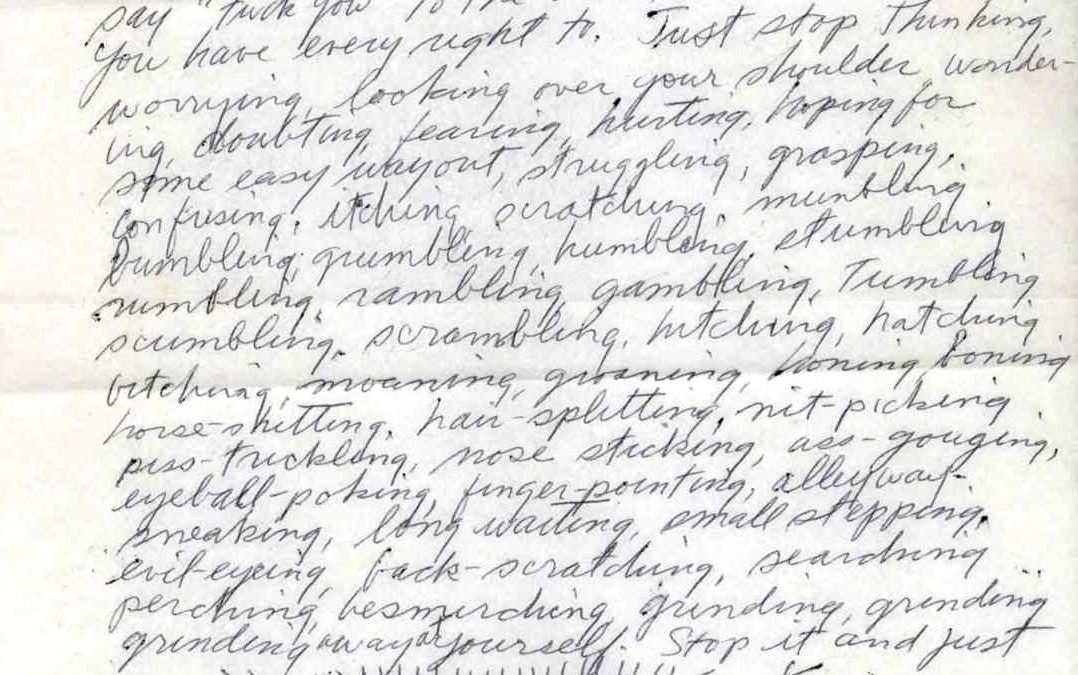 say "Fuck You" to the
You have every right to. Just stop thinking,
worrying, looking over your shoulder wonder-
ing, doubting, fearing, hurting, hoping for
some easy way out, struggling, grasping,
confusing, itching, scratching, mumbling
bumbling, grumbling, humbling, stumbling
rumbling, rambling, gambling, Tumbling
scumbling, scrambling, hitching, hatching
bitching, moaning, groaning, honing boning
horse-shitting, hair-splitting, nit-picking
piss-trickling, nose sticking, ass-gouging,
eyeball-poking, finger-pointing, alleyway-
sneaking, long waiting, small stepping,
evil-eyeing, back-scratching, searching
perching, besmirching, grinding, grinding
grinding away at yourself. Stop it and just